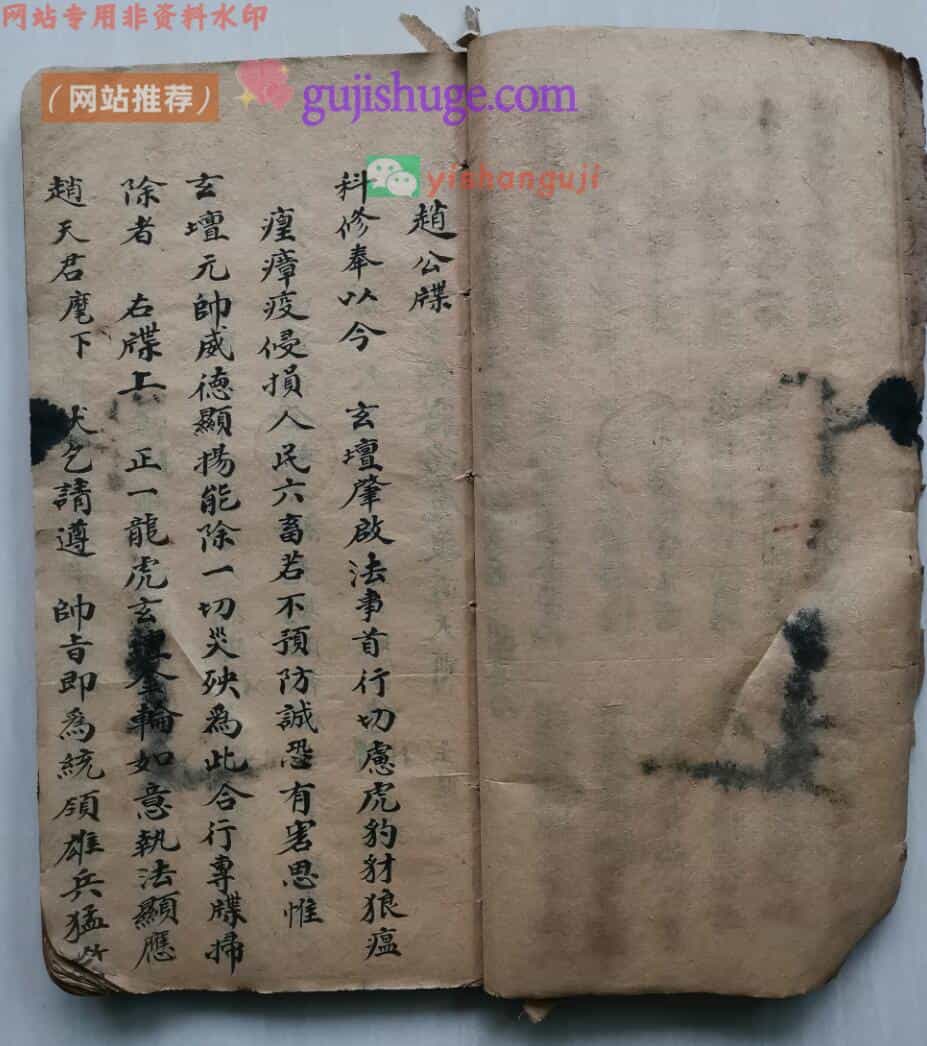 网站专用非资料水印
（网站推荐）
gujishuge.com
yishanguji
趙公牒
科修奉以今　玄壇肇啟法事首行切慮虎豹豺狼瘟
瘽瘴疫侵損人民六畜若不預防誠恐有害思惟
玄壇元帥威德顯揚能除一切災殃為此合行專牒掃
除者　右牒上　正一龍虎玄壇金輪如意執法顯應
趙天君麾下　伏乞請遵　帥旨即為統領雄兵猛